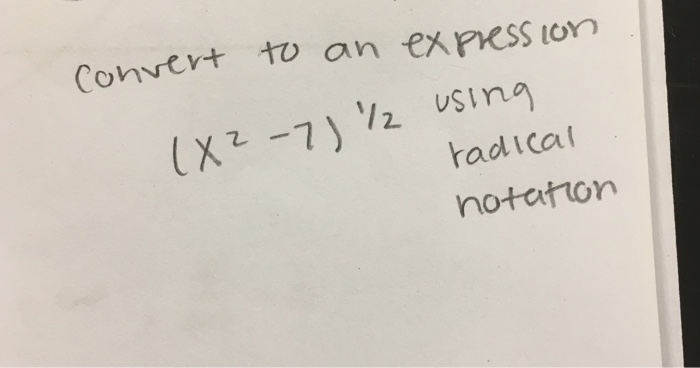 Convert to an expression
(x² -7) ½ using
radical
notation